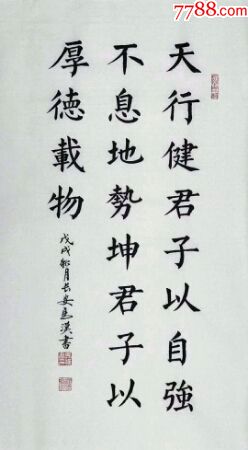 7788.com
天行健君子以自強
不息地勢坤君子以
厚德載物
戊戌
月長安馬漢書